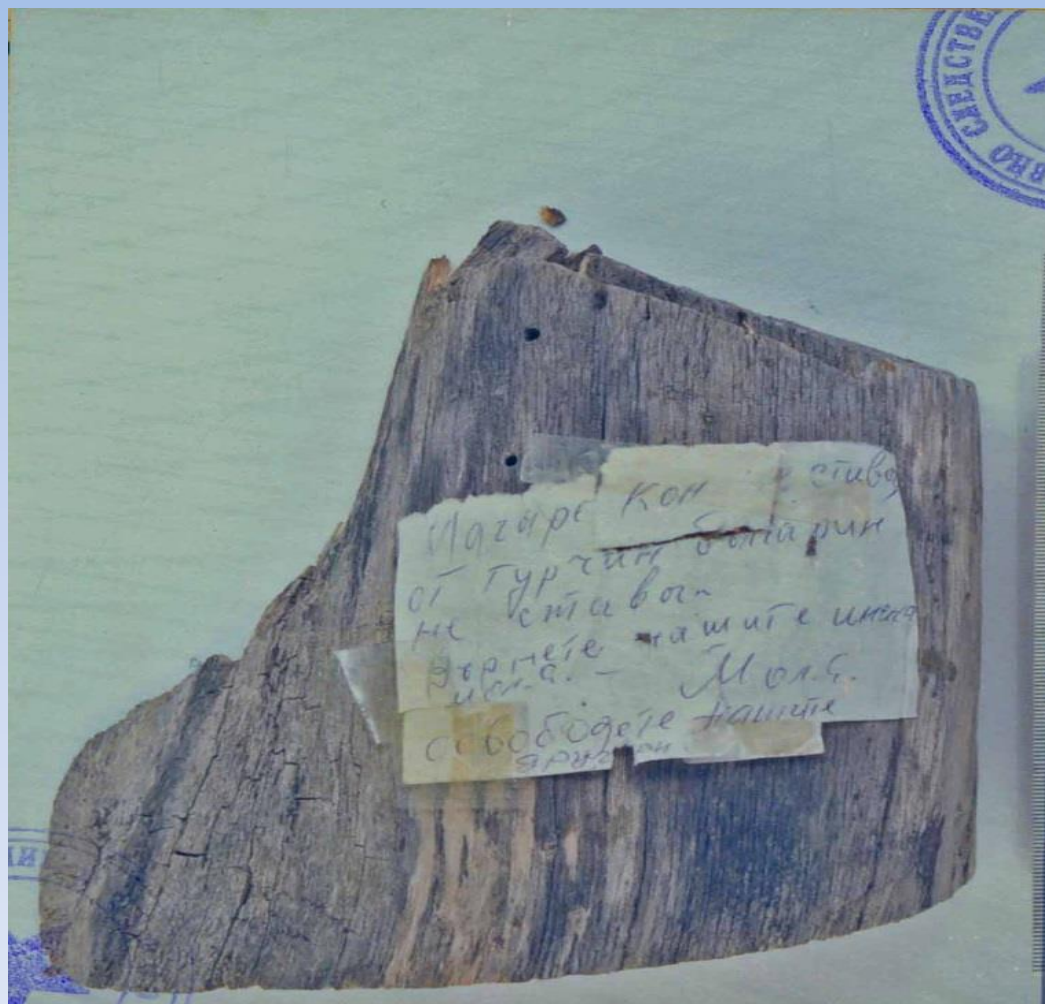 ВНО СЛЕДСТВЕ
Магаре Кон става
от турчин българин
не става
Върнете нашите имена
Моля.
освободете нашите